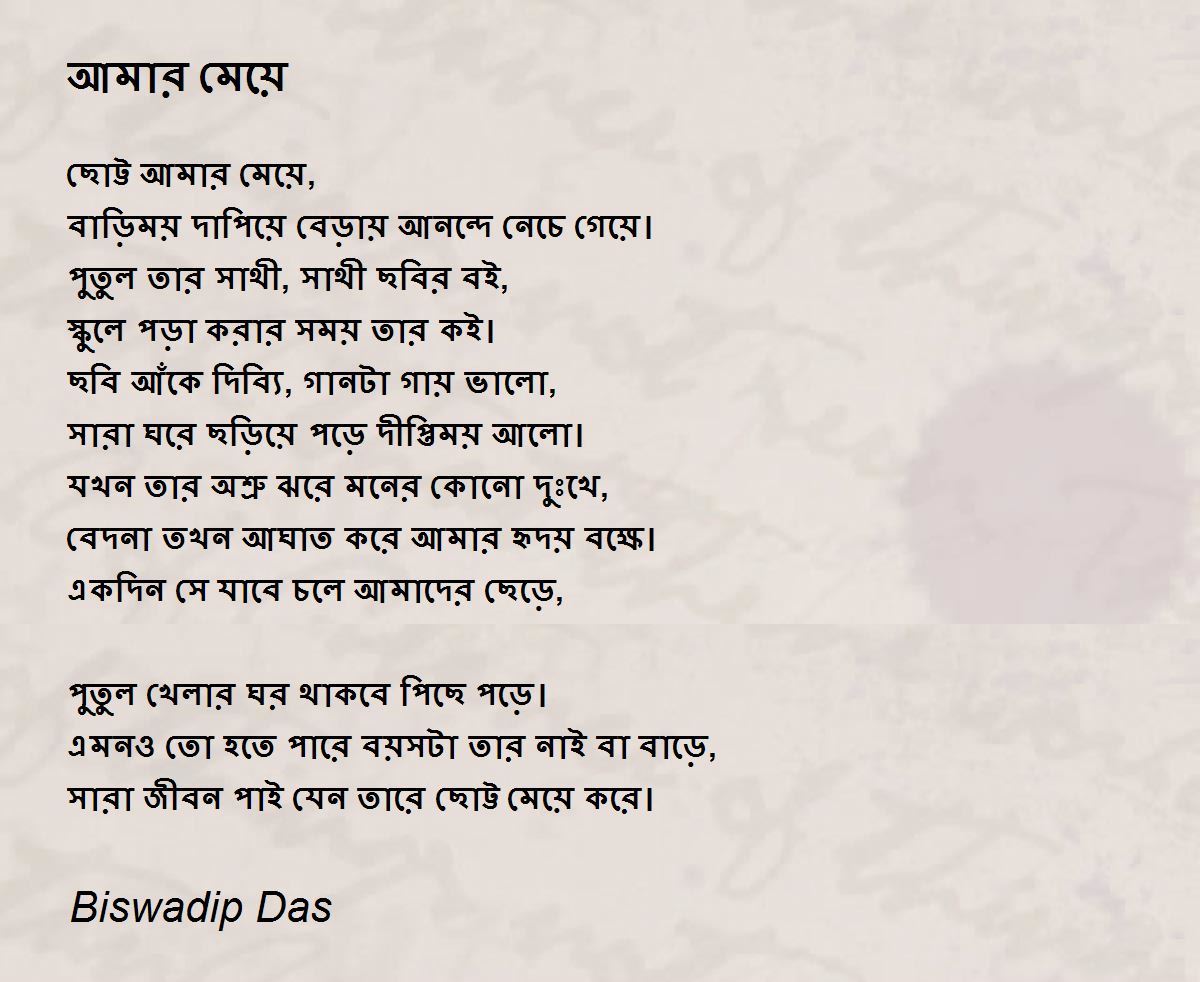 আমার মেয়ে
ছোট্ট আমার মেয়ে,
বাড়িময় দাপিয়ে বেড়ায় আনন্দে নেচে গেয়ে।
পুতুল তার সাথী, সাথী ছবির বই,
স্কুলে পড়া করার সময় তার কই।
ছবি আঁকে দিব্যি, গানটা গায় ভালো,
সারা ঘরে ছড়িয়ে পড়ে দীপ্তিময় আলো।
যখন তার অশ্রু ঝরে মনের কোনো দুঃখে,
বেদনা তখন আঘাত করে আমার হৃদয় বক্ষে।
একদিন সে যাবে চলে আমাদের ছেড়ে,
পুতুল খেলার ঘর থাকবে পিছে পড়ে।
এমনও তো হতে পারে বয়সটা তার নাই বা বাড়ে,
সারা জীবন পাই যেন তারে ছোট্ট মেয়ে করে।
Biswadip Das